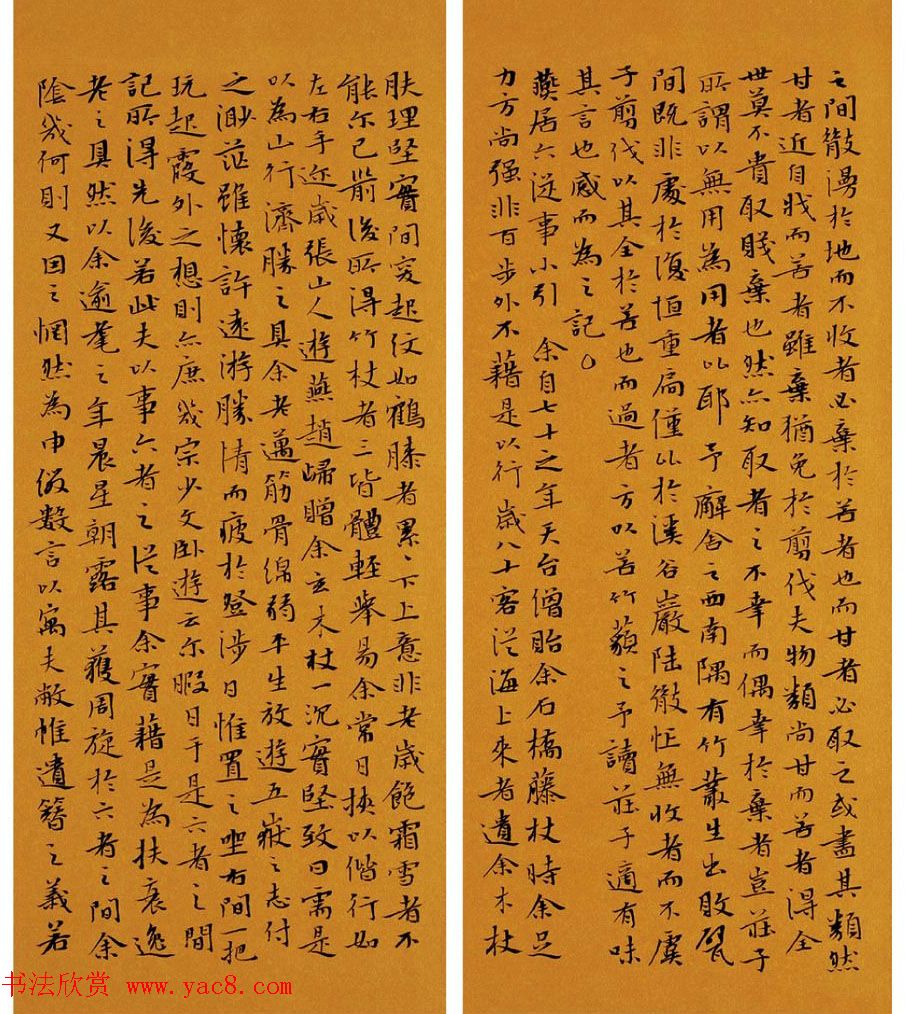 之間散漫於地而不收者必棄於苦者也而甘者必取之或盡其類然
甘者近自戕而苦者雖棄猶免於剪伐夫物類尚甘而苦者得全
世莫不貴取賤棄也然亦知取者之不幸而偶幸於棄者豈莊子
所謂以無用為用者比耶予廨舍之西南隅有竹叢生出敗甓
間既非處於復垣重扃僅比於溪谷巖陸散地無收者而不虞
子剪伐以其全於苦也而過者方以苦竹藐之予讀莊子適有味
其言也感而為之記。
燕居六從事小引 余自七十之年天台僧貽余石橋藤杖時余足
力方尚强非百步外不藉是以行歲八十客從海上來者遺余木杖
肤理堅實間突起紋如鶴膝者累々下上意非老歲飽霜雪者不
能尔已前後所得竹杖者三皆體輕舉易余常日挾以偕行如
左右手近歲張山人遊燕趙歸贈余玄木杖一沉實堅致曰需是
以為山行濟勝之具余老邁筋骨綿弱平生放遊五嶽之志付
之渺茫雖懷許遠游勝情而疲於登涉日惟置之坐右間一把
玩起霞外之想則亦庶幾宗少文臥遊云尔暇日于是六者之間
記所得先後若此夫以事六者之從事余實藉是為扶衰逸
老之具然以余逾耄之年晨星朝露其獲周旋於六者之間余
陰幾何則又因之惘然為申假數言以寓夫敝帷遺簪之義若
书法欣赏 www.yac8.com